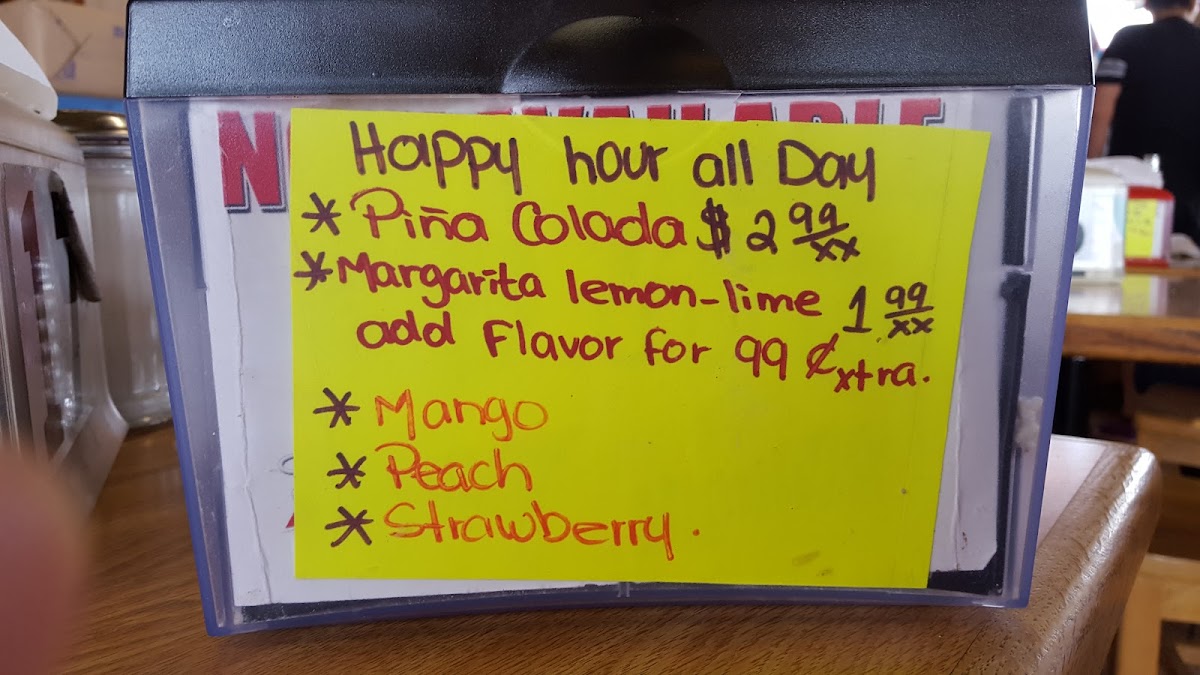 Happy hour all Day
* Piña Colada $ 2 99/xx
* Margarita lemon-lime 1 99/xx
add Flavor for 99 ¢xtra.
* Mango
* Peach
* Strawberry.